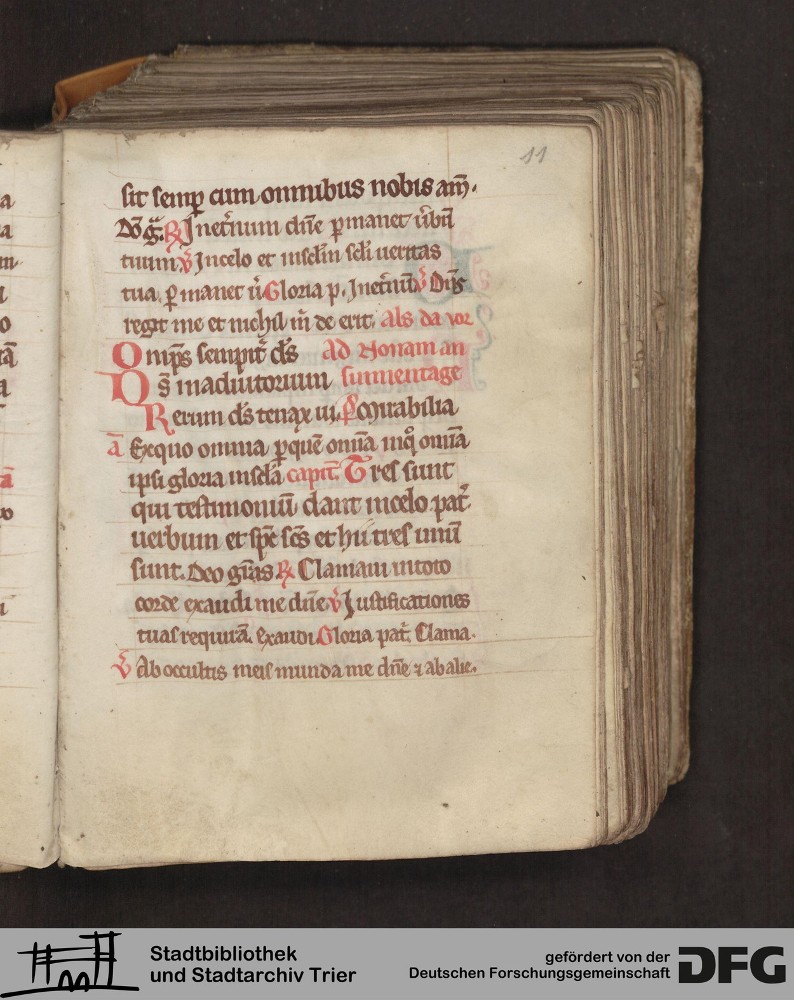 11
sit semꝑ cum omnibus nobis am̄.
Dō gͣ. ℟ Inet̄num dn̄e ꝑmanet v̄bū
tuum ℣ Incelo et insclm̄ scl̄i ueritas
tua. ꝑmanet v̄ Gloria p. Inet̄nū ℣ Dn̄s
regit me et nichil m̄ de erit. Als da vor
Omp̄s sempit̄ ds̄ Ad Nonam an
Ds̄ inadiutorium
Rerum ds̄ tenax ui. p̄s Mirabilia
ā Exquo omnia ꝑquē om̄ia inqͦ om̄ia
ipsi gloria inscl̄a capit̄. Tres sunt
qui testimoniū dant incelo. pat̄
uerbum et sp̄c sc̄s et hii tres unū
sunt. Deo gr̄as ℟ Clamaui intoto
corde exaudi me dn̄e ℣ Iustificationes
tuas requirā. Exaudi Gloria pat̄. Clama.
℣ Ab occultis meis munda me dn̄e ⁊ ab alie.
Stadtbibliothek
und Stadtarchiv Trier
gefördert von der
Deutschen Forschungsgemeinschaft
DFG